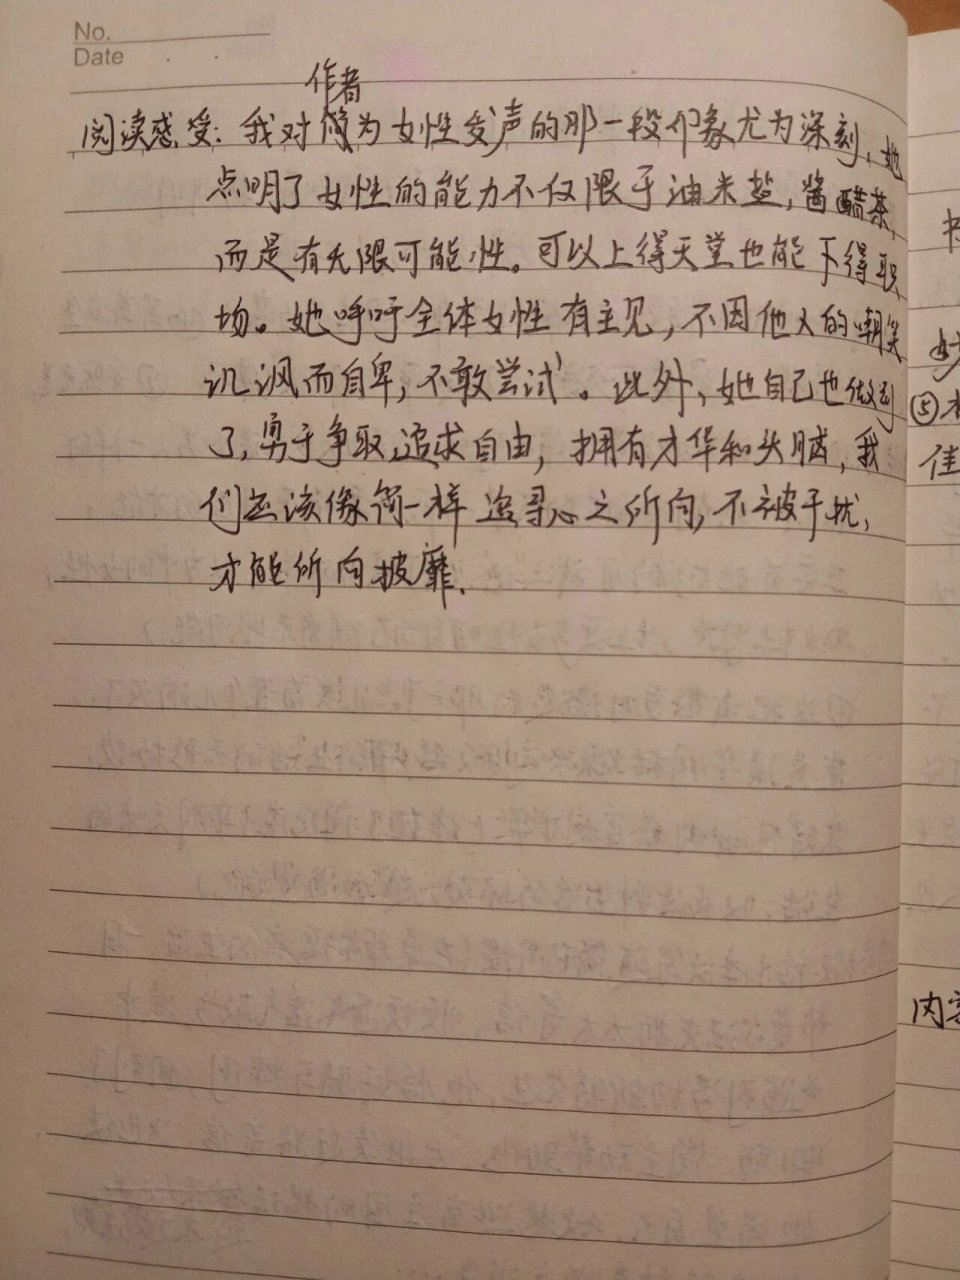 No.
Date
作者
阅读感受：我对简为女性发声的那一段印象尤为深刻，她
点明了女性的能力不仅限于油米盐，酱醋茶，
而是有无限可能性。可以上得天堂也能下得职
场。她呼吁全体女性有主见，不因他人的嘲笑
讥讽而自卑，不敢尝试。此外，她自己也做到
了，勇于争取，追求自由，拥有才华和头脑，我
们应该像简一样追寻心之所向，不被干扰，
才能所向披靡.
⑤
佳
内容